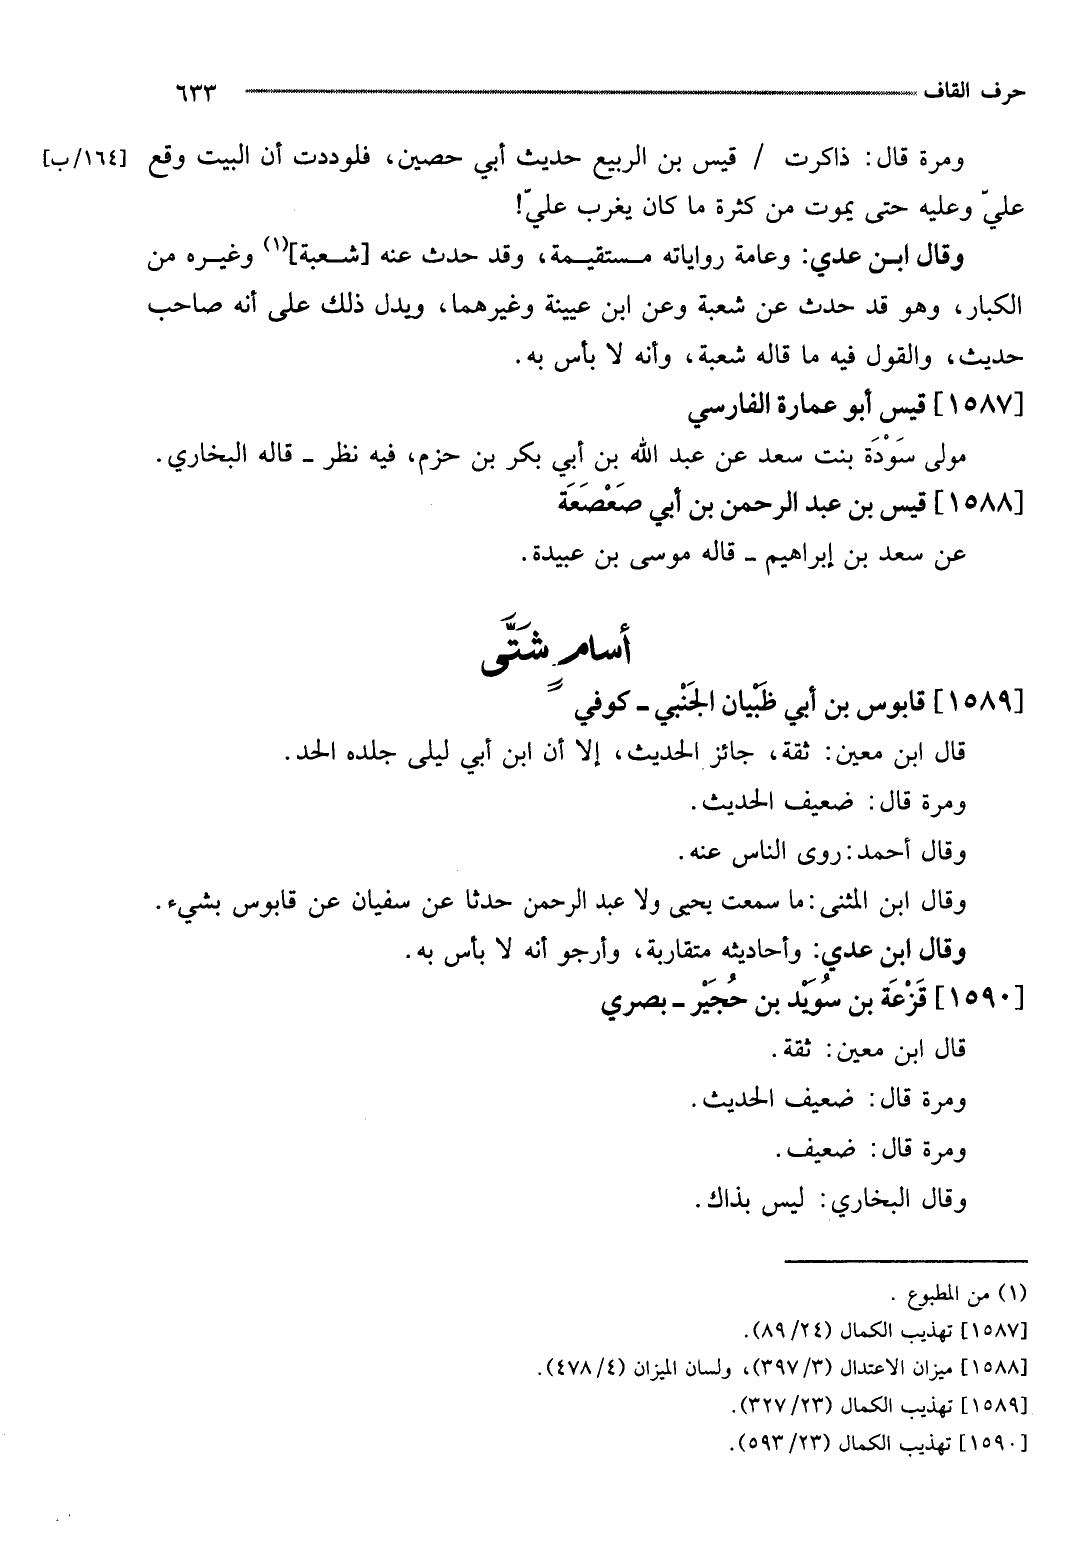 حرف القاف ٦٣٣
ومرة قال: ذاكرت / قيس بن الربيع حديث أبي حصين، فلوددت أن البيت وقع [١٦٤/ب]
عليّ وعليه حتى يموت من كثرة ما كان يغرب عليّ!
وقال ابن عدي: وعامة رواياته مستقيمة، وقد حدث عنه [شعبة](١) وغيره من
الكبار، وهو قد حدث عن شعبة وعن ابن عيينة وغيرهما، ويدل ذلك على أنه صاحب
حديث، والقول فيه ما قاله شعبة، وأنه لا بأس به.
[١٥٨٧] قيس أبو عمارة الفارسي
مولى سَوْدَة بنت سعد عن عبد الله بن أبي بكر بن حزم، فيه نظر ـ قاله البخاري.
[١٥٨٨] قيس بن عبد الرحمن بن أبي صَعْصَعَة
عن سعد بن إبراهيم ـ قاله موسى بن عبيدة.
أسامٍ شَتَّى
[١٥٨٩] قابوس بن أبي ظَبْيان الجَنْبي ـ كوفي
قال ابن معين: ثقة، جائز الحديث، إلا أن ابن أبي ليلى جلده الحد.
ومرة قال: ضعيف الحديث.
وقال أحمد: روى الناس عنه.
وقال ابن المثنى: ما سمعت يحيى ولا عبد الرحمن حدثا عن سفيان عن قابوس بشيء.
وقال ابن عدي: وأحاديثه متقاربة، وأرجو أنه لا بأس به.
[١٥٩٠] قَزْعَة بن سُوَيْد بن حُجَيْر ـ بصري
قال ابن معين: ثقة.
ومرة قال: ضعيف الحديث.
ومرة قال: ضعيف.
وقال البخاري: ليس بذاك.
(١) من المطبوع.
[١٥٨٧] تهذيب الكمال (٢٤/ ٨٩).
[١٥٨٨] ميزان الاعتدال (٣/ ٣٩٧)، ولسان الميزان (٤/ ٤٧٨).
[١٥٨٩] تهذيب الكمال (٢٣/ ٣٢٧).
[١٥٩٠] تهذيب الكمال (٢٣/ ٥٩٣).